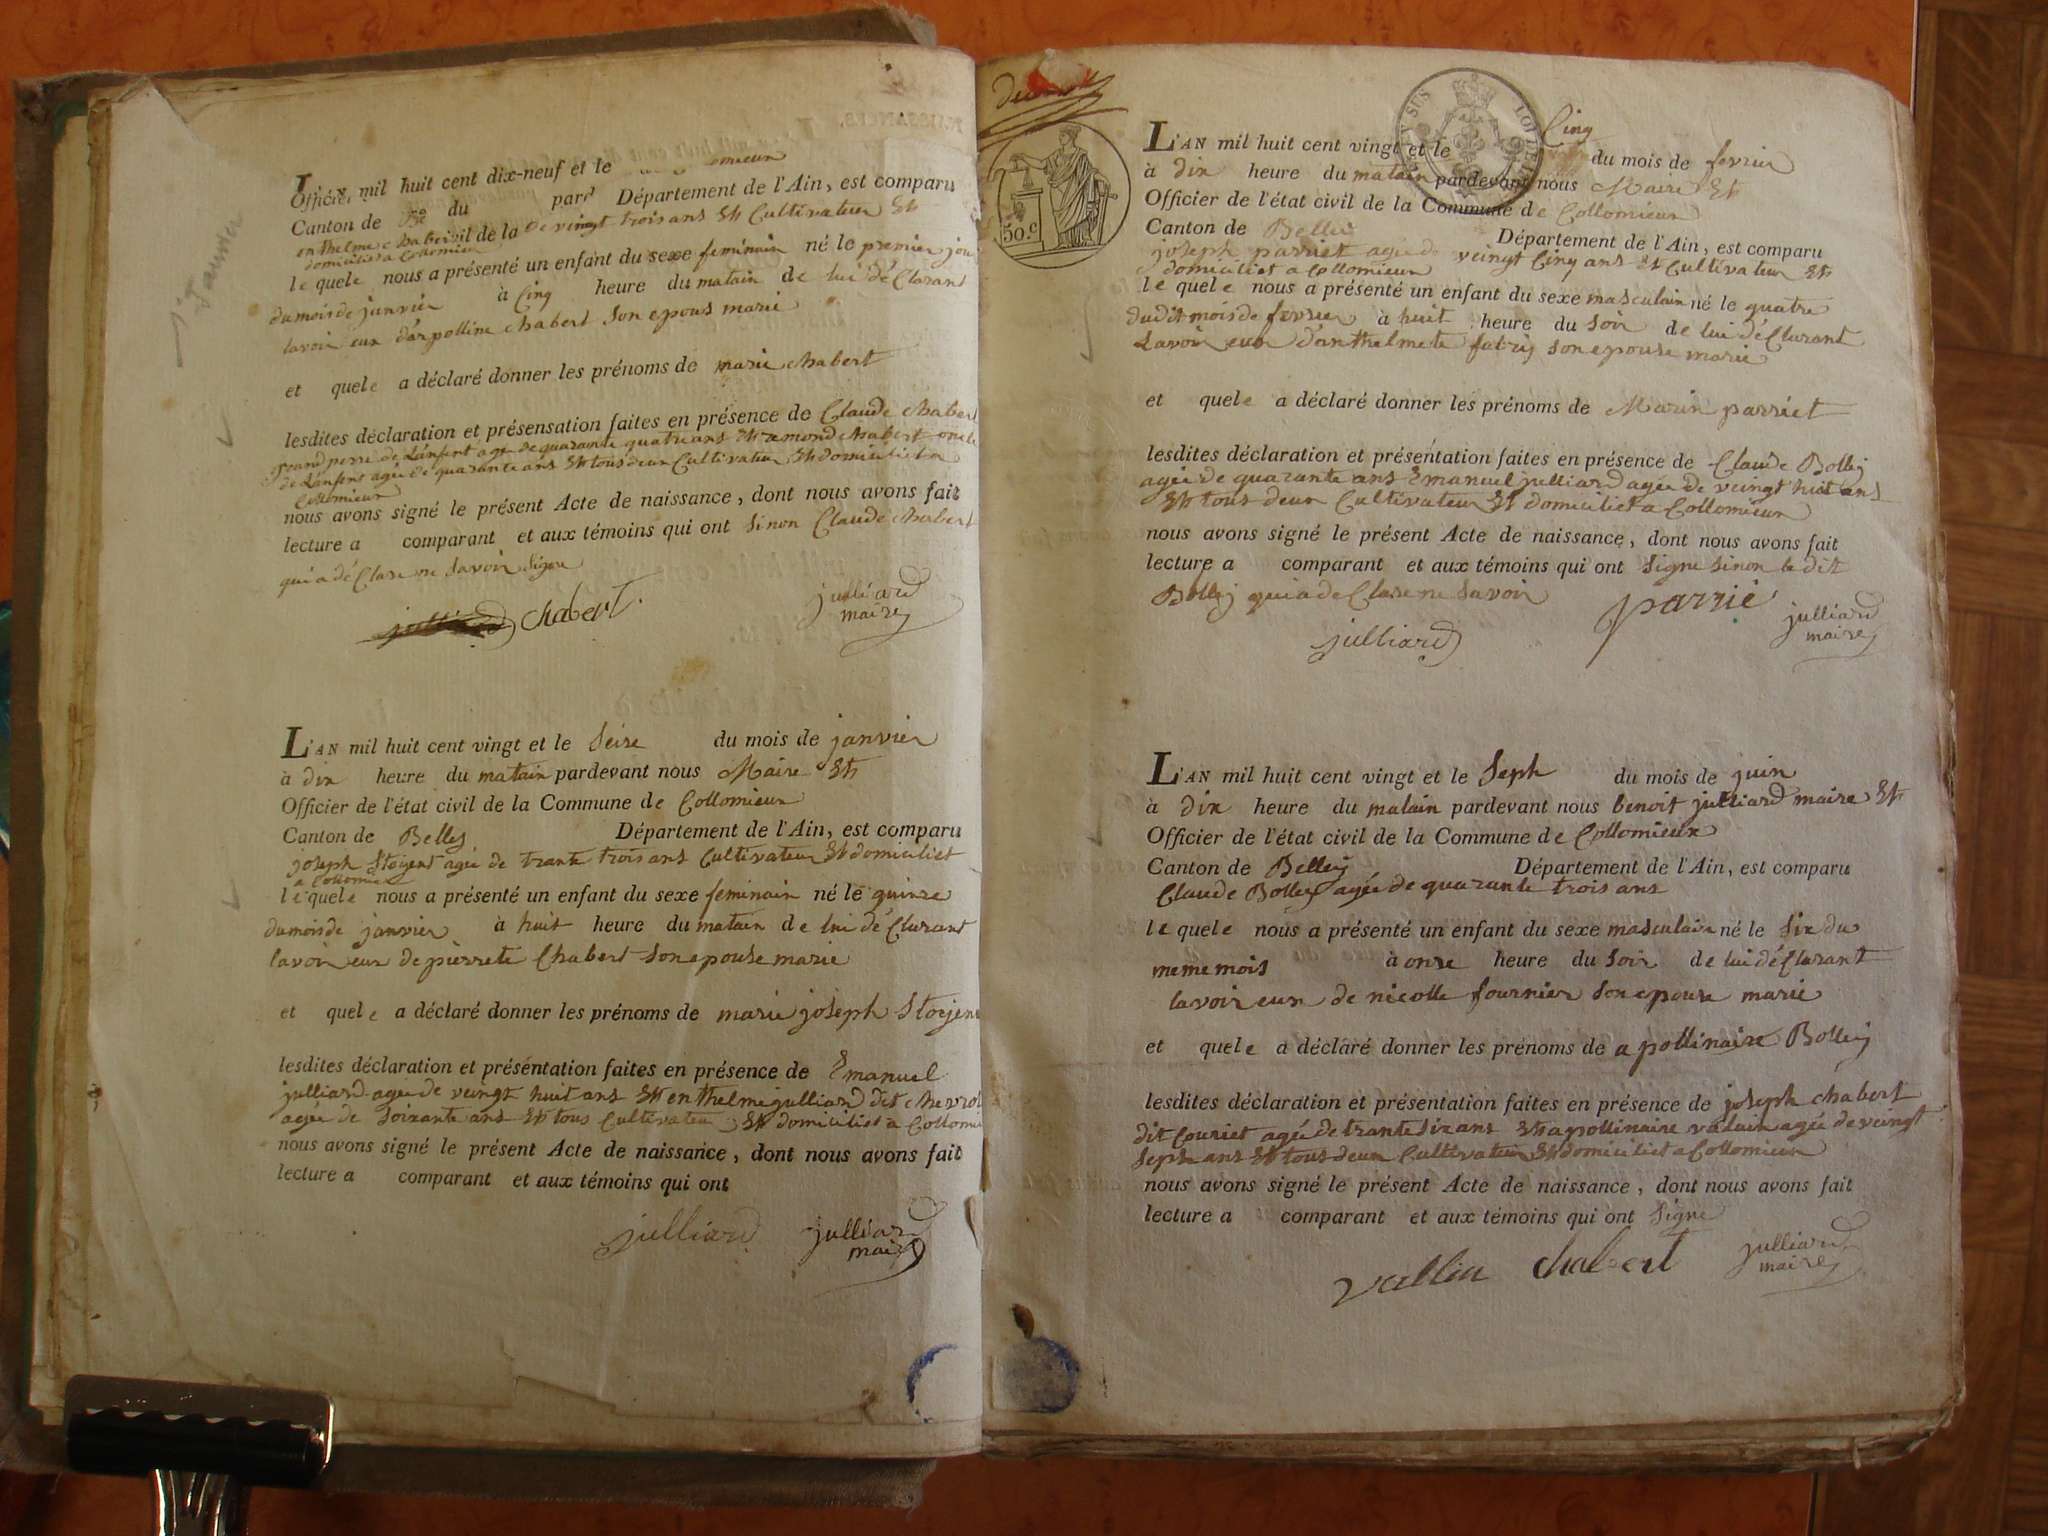 L'AN mil huit cent dix-neuf et le
omieux
Officier
Canton de du par Département de l'Ain, est comparu
enthelme chabert il de la de vingt trois ans Et Cultivateur Et
domicilié a Collomieux
le quele nous a présenté un enfant du sexe feminain né le premier jou
du mois de janvier à Cinq heure du matain de lui déClarant
lavoir eux d'arpolline chabert Son epous marié
et quele a déclaré donner les prénoms de marie chabert
lesdites déclaration et présensation faites en présence de Claude chabert
grand perre de Lenfent age de quarante quatre ans Et remond chabert oncle
de Lenfent agée de quarante ans Et tous deux Cultivateur Et domiciliet a
Collomieux
nous avons signé le présent Acte de naissance, dont nous avons fait
lecture a comparant et aux témoins qui ont sinon Claude chabert
qui a déClare ne Savoir Signe
julliard chabert.
julliard
maire
janvier
L'AN mil huit cent vingt et le Seise du mois de janvier
à dix heure du matain pardevant nous Maire Et
Officier de l'état civil de la Commune de Collomieux
Canton de Belley Département de l'Ain, est comparu
joseph Stoyent agée de trante trois ans Cultivateur Et domiciliet
a Collomieux
le quele nous a présenté un enfant du sexe feminain né le quinze
du mois de janvier à huit heure du matain de lui déClarant
lavoir eux de pierrete Chabert Son epouse marié
et quele a déclaré donner les prénoms de marie joseph Stoyent
lesdites déclaration et présentation faites en présence de Emanuel
julliard agée de veingt huit ans Et enthelme julliard dit chevrol
agée de Soixante ans Et tous Cultivateur Et domiciliet a Collomieu
nous avons signé le présent Acte de naissance, dont nous avons fait
lecture a comparant et aux témoins qui ont
julliard julliard
maire
50.c
L'AN mil huit cent vingt et le Cinq du mois de fevrier
à dix heure du matain pardevant nous Maire Et
Officier de l'état civil de la Commune de Collomieux
Canton de Belley Département de l'Ain, est comparu
joseph parriet agée de veingt Cinq ans Et Cultivateur Et
domiciliet a Collomieux
le quele nous a présenté un enfant du sexe masculain né le quatre
dudit mois de fevrier à huit heure du Soir de lui déClarant
Lavoir eux d'anthelmete fabry Son epouse marié
et quele a déclaré donner les prénoms de Marin parriet
lesdites déclaration et présentation faites en présence de Claude Bolley
agée de quarante ans Emanuel julliard agée de veingt huit ans
Et tous deux Cultivateur Et domiciliet a Collomieux
nous avons signé le présent Acte de naissance, dont nous avons fait
lecture a comparant et aux témoins qui ont Signe Sinon le dit
Bolley qui a deClare ne Savoir
parrié
julliard
julliard
maire
L'AN mil huit cent vingt et le Seph du mois de juin
à dix heure du matain pardevant nous benoit julliard maire Et
Officier de l'état civil de la Commune de Collomieux
Canton de Belley Département de l'Ain, est comparu
Claude Bolley agée de quarante trois ans
le quele nous a présenté un enfant du sexe masculain né le Six du
meme mois à onze heure du Soir de lui déClarant
lavoir eux de nicolle fournier Son epouse marié
et quele a déclaré donner les prénoms de apollinaire Bolley
lesdites déclaration et présentation faites en présence de joseph chabert
dit Couriet agée de trante Six ans Et apollinaire valain agée de veingt
Seph ans Et tous deux Cultivateur Et domiciliet a Collomieux
nous avons signé le présent Acte de naissance, dont nous avons fait
lecture a comparant et aux témoins qui ont Signe
vallin chabert
julliard
maire